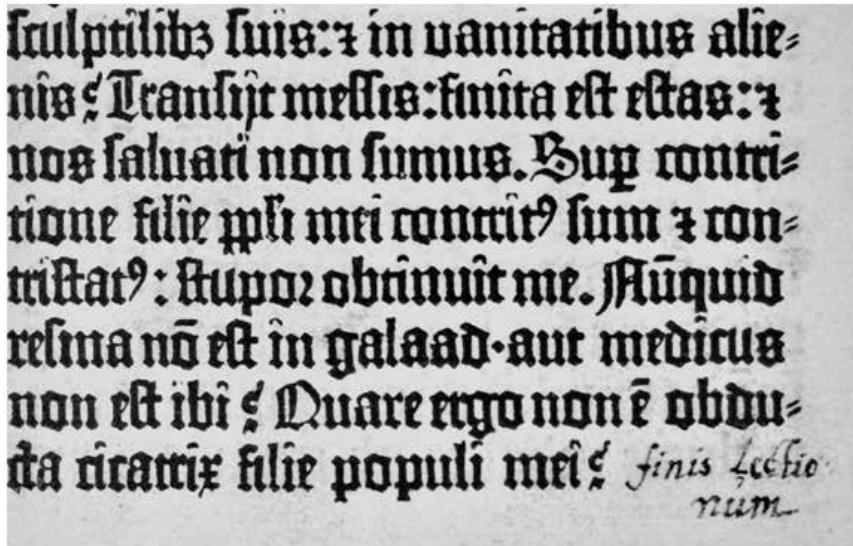 sculptilibꝫ suis: ⁊ in uanitatibus alie⸗
nis? Transijt messis: finita est estas: ⁊
nos saluati non sumus. Suꝑ contri⸗
tione filie ppl'i mei contritꝰ sum ⁊ con⸗
tristatꝰ: stupor obtinuit me. Nūquid
resina nō est in galaad·aut medicus
non est ibi? Quare ergo non ē obdu⸗
cta cicatrix filie populi mei?
finis Lectio
num